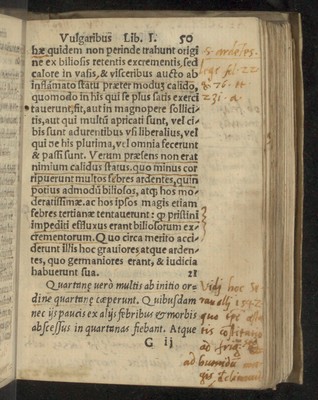 Vulgaribus Lib. I. 50
hæ quidem non perinde trahunt origi
ne ex biliosis retentis excrementis, sed
calore in vasis, & visceribus aucto ab
inflāmato statu præter modū calido,
quomodo in his qui se plus satis exerci
tauerunt, fit, aut in magnopere sollici-
tis, aut qui multū apricati sunt, vel ci-
bis sunt adurentibus vsi liberalius, vel
qui de his plurima, vel omnia fecerunt
& passi sunt. Verum præsens non erat
nimium calidus status. quo minus cor
ripuerunt multos febres ardentes, quin
potius admodū biliosos, atqȝ hos mo-
deratissimæ. ac hos ipsos magis etiam
febres tertianæ tentauerunt: qȝ pristini
impediti effluxus erant biliosorum ex-
crementorum. Quo circa merito acci-
derunt illis hoc grauiores atque arden-
tes, quo germaniores erant, & iudicia
habuerunt sua. 21
Quartanę uerò multis ab initio or-
dine quartanę cœperunt. Quibusdam
nec ijs paucis ex alijs febribus & morbis
abscessus in quartanas fiebant. Atque
G ij